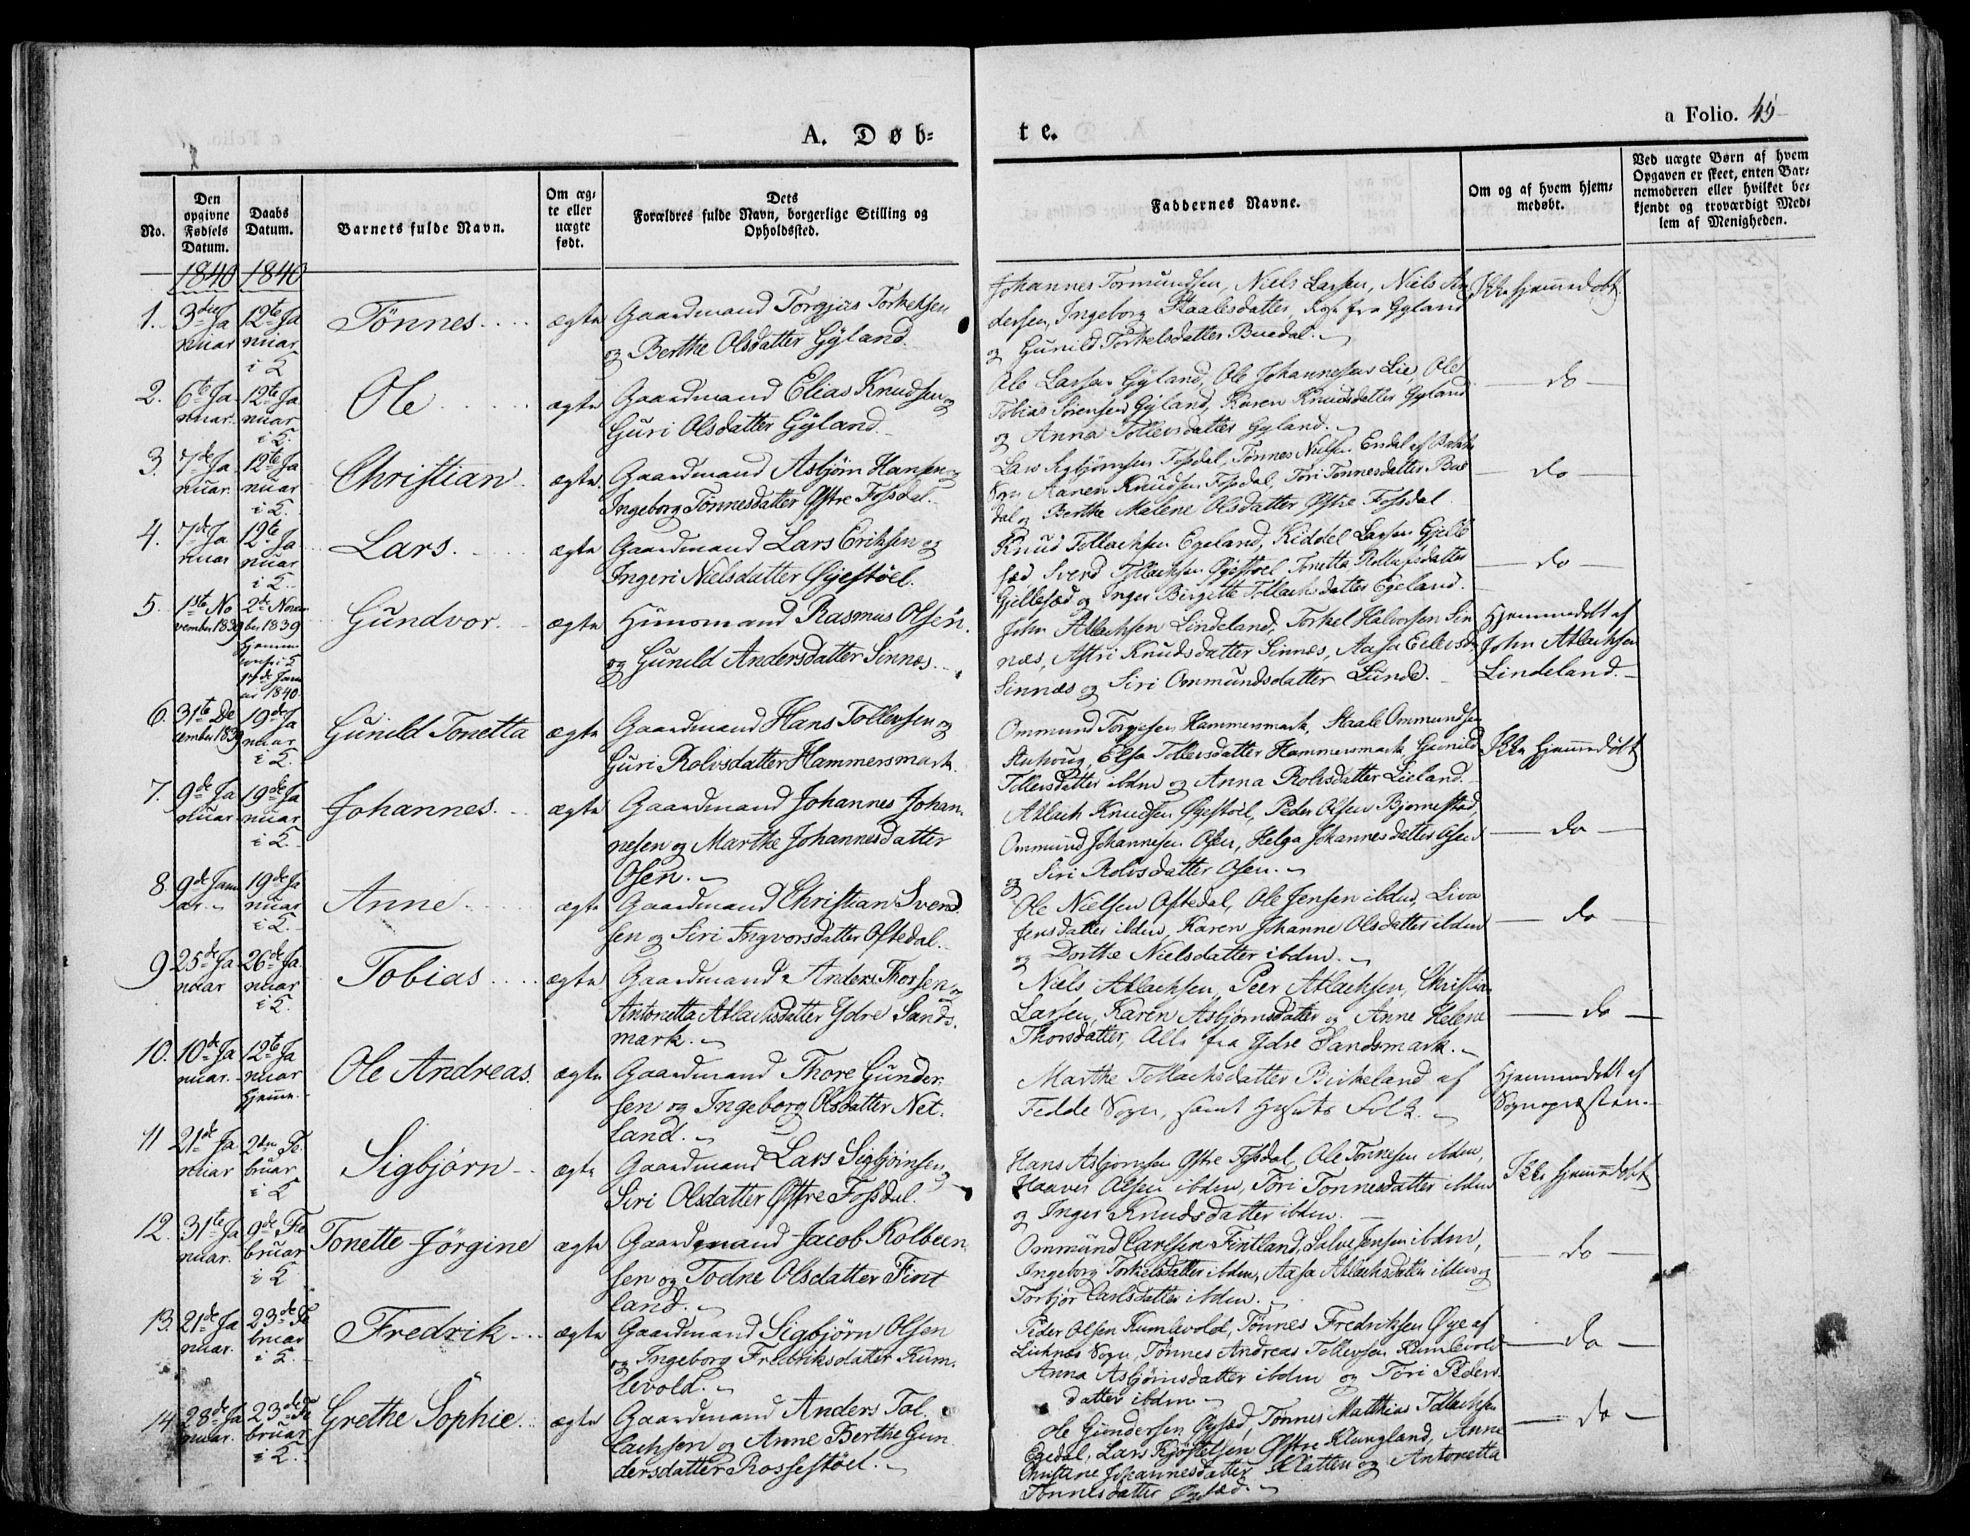 A. Døb-
te.
a Folio. 45
No.
Den opgivne Fødsels Datum.
Daabs Datum.
Barnets fulde Navn.
Om æg-
te eller
uægte
født.
Dets
Forældres fulde Navn, borgerlige Stilling og
Opholdssted.
Faddernes Navne.
Om og af hvem hjem-
medøbt.
Ved uægte Børn af hvem
Opgaven er skeet, enten Bar-
nemoderen eller hvilket be-
kjendt og troværdigt Med-
lem af Menigheden.
1840 1840
1. 3die Ja
nuar
12te Ja
nuar
i K
Tønnes
ægte
Gaardmand Torgjus Torkelsen
og Berthe Olsdatter Gyland.
Johannes Tormundsen, Niels Larsen, Niels An
dersen, Ingeborg Staalesdatter, fra Gyland
og Gunild Torkelsdatter Buedal.
Ikke hjemmedøbt.
2. 6te Ja
nuar.
12te Ja
nuar
i K.
Ole
ægte
Gaardmand Elias Knudsen og
Guri Olsdatter Gyland
Ole Larsen Gyland, Ole Johannessen Lie, Ole
Tobias Sørensen Gyland, Karen Knudsdatter Gyland
og Anna Tollevsdatter Gyland.
do
3. 7de Ja
nuar.
12te Ja
nuar
i K.
Christian
ægte
Gaardmand Asbjørn Hansen og
Ingeborg Tønnesdatter Østre Fossdal.
Lars Sigbjørnsen Fossdal, Tønnes Nielsen Ersdal af Bakke
Sogn, Aanen Knudsen Fossdal, Tori Tønnesdatter Bue
dal og Berthe Malene Olsdatter Østre Fossdal
do
4. 7de Ja
nuar
12te Ja
nuar
i K.
Lars.
ægte
Gaardmand Lars Eriksen og
Ingeri Nielsdatter Øyestøel.
Knud Tollachsen Egeland, Kiddel Larsen Gjelle
sæd, Svend Tollachsen Øyestøel, Tonetta Rollefsdatter
Gjellesæd og Inger Birgitte Tollachsdatter Egeland.
do
5. 1ste No
vember 1839
2de Novem
ber 1839
Hjemme
i K
Janu
ar 1840
Gundvor
ægte
Huusmand Rasmus Olsen
og Gunild Andersdatter Sinnes.
John Atlachsen Lindeland, Torkel Halvorsen Sin
næs, Astri Knudsdatter Sinnes, Aasa Eilertsd.
Sinnæs og Siri Ommundsdatter Lunde.
Hjemmedøbt af
John Atlachsen
Lindeland.
6. 31te De
cember 1839
19de Ja
nuar
i K
Gunild Tonetta
ægte
Gaardmand Hans Tollevsen og
Guri Rolvsdatter Hammersmark.
Ommund Torgjesen Hammersmark, Staale Ommundsen
Elsa Tollevsdatter Hammersmark, Gunild
Tollevsdatter ibdm og Anna Rolvsdatter Lieland.
Ikke hjemmedøbt
7. 9de Ja
nuar.
19de Ja
nuar
i K.
Johannes.
ægte
Gaardmand Johannes Johan
nesen og Marthe Johannesdatter
Osen.
Atlach Knudsen Øyestøel, Peder Olsen Bjørnestad,
Ommund Johannesen Osen, Helga Johannesdatter Osen
og Siri Rolvsdatter Osen.
do
8. 9de Janu
ar.
19de Ja
nuar
i K.
Anne
ægte
Gaardmand Christian Svend
sen og Siri Ingvorsdatter Oftedal.
Ole Nielsen Oftedal, Ole Jensen ibdm, Liva
Jensdatter ibdm, Karen Johanne Olsdatter ibdm
og Dorthe Nielsdatter ibdm.
do
9 25de Ja
nuar
26de Ja
nuar
i K.
Tobias
ægte
Gaardmand Anders Thorsen og
Antonetta Atlachsdatter Ydre Sands-
mark.
Niels Atlachsen, Peer Atlachsen, Christian
Larsen, Karen Asbjørnsdatter og Anne Helene
Thorsdatter, Alle fra Ydre Sandsmark.
do
10. 10de Ja
nuar.
12te Ja
nuar
Hjemme.
Ole Andreas.
ægte
Gaardmand Thore Gunder-
sen og Ingeborg Olsdatter Net-
land.
Marthe Tollachsdatter Birkeland af
Fedde Sogn, samt Husets Folk.
Hjemmedøbt af
Sognepræsten.
11 21de Ja
nuar
2den Fe
bruar
i K
Sigbjørn
ægte
Gaardmand Lars Sigbjørnsen og
Siri Olsdatter Østre Fossdal.
Hans Asbjørnsen Østre Fossdal, Ole Tønnesen ibdm,
Haaver Olsen ibdm, Tori Tønnesdatter ibdm
og Inger Knudsdatter ibdm.
Ikke hjemmedøbt
12. 31te Ja
nuar.
9de Fe
bruar
i K
Tonette Jørgine
ægte
Gaardmand Jacob Kolbeen
sen og Todne Olsdatter Fint
land.
Ommund Carlsen Fintland, Salve Jensen ibdm,
Ingeborg Torkelsdatter ibdm, Aasa Atlachsdatter ibdm og
Torbjør Carlsdatter ibdm.
do
13. 21de Ja
nuar.
23de Fe
bruar
i K.
Fredrik
ægte
Gaardmand Sigbjørn Olsen
og Ingeborg Fredriksdatter Kum-
levold.
Peder Olsen Kumlevold, Tønnes Fredriksen Øye af
Liknes Sogn, Tønnes Andreas Tollevsen Kumlevold
Anna Asbjørnsdatter ibdm og Tori Peders
datter ibdm
do
14. 28de Ja
nuar.
23de Fe
bruar
i K.
Grethe Sophie.
ægte
Gaardmand Anders Tol-
lachsen og Anne Berthe Gun
dersdatter Rossestøel.
Ole Gundersen Øysæd, Tønnes Matthias Tollachsen
Egedal, Lars Kjøstelsen Østre Klungland, Anne
Christine Johannesdatter Slatten og Antonetta
Tønnesdatter Øysæd.
do